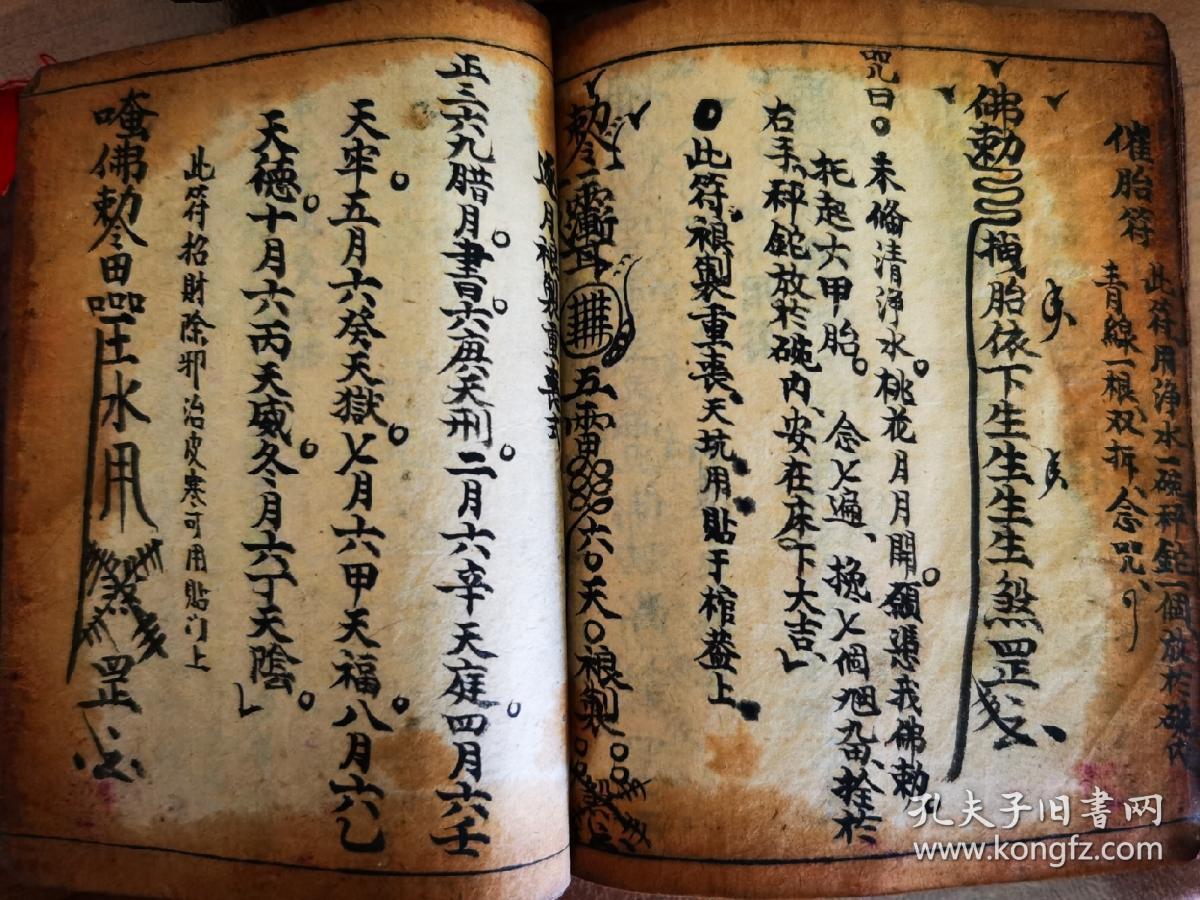 催胎符
此符用净水一碗秤鉈一個放於碗内
青線一根、双折、念咒、
佛勅拽胎依下生生生生煞罡
咒曰。未偹清淨水。桃花月月開。願憑我佛勅。
托起六甲胎。念七遍、挽七個
右手、秤鉈放於碗内、安在床下大吉、
此符禳製重喪、天坑用貼于棺蓋上
勅令
五雷
六〇天〇禳製。
正三六九腊月。書六庚天刑。二月六辛天庭。四月六壬
天牢。五月六癸天獄。七月六甲天福。八月六乙
天德。十月六丙天威。冬月六丁天陰。
此符招財除邪治皮寒可用貼门上
唵佛勅令
水用煞罡
孔夫子旧書网
www.kongfz.com